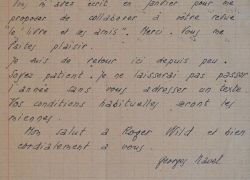 m'avez écrit en janvier pour me
proposer de collaborer à votre revue
le "livre et ses amis". Merci. Vous me
faites plaisir.
je suis de retour ici depuis peu.
Soyez patient. je ne laisserai pas passer
l'année sans vous adresser un texte.
Vos conditions habituelles seront les
miennes.
Mon salut à Roger Wild et bien
cordialement à vous.
Georges Navel